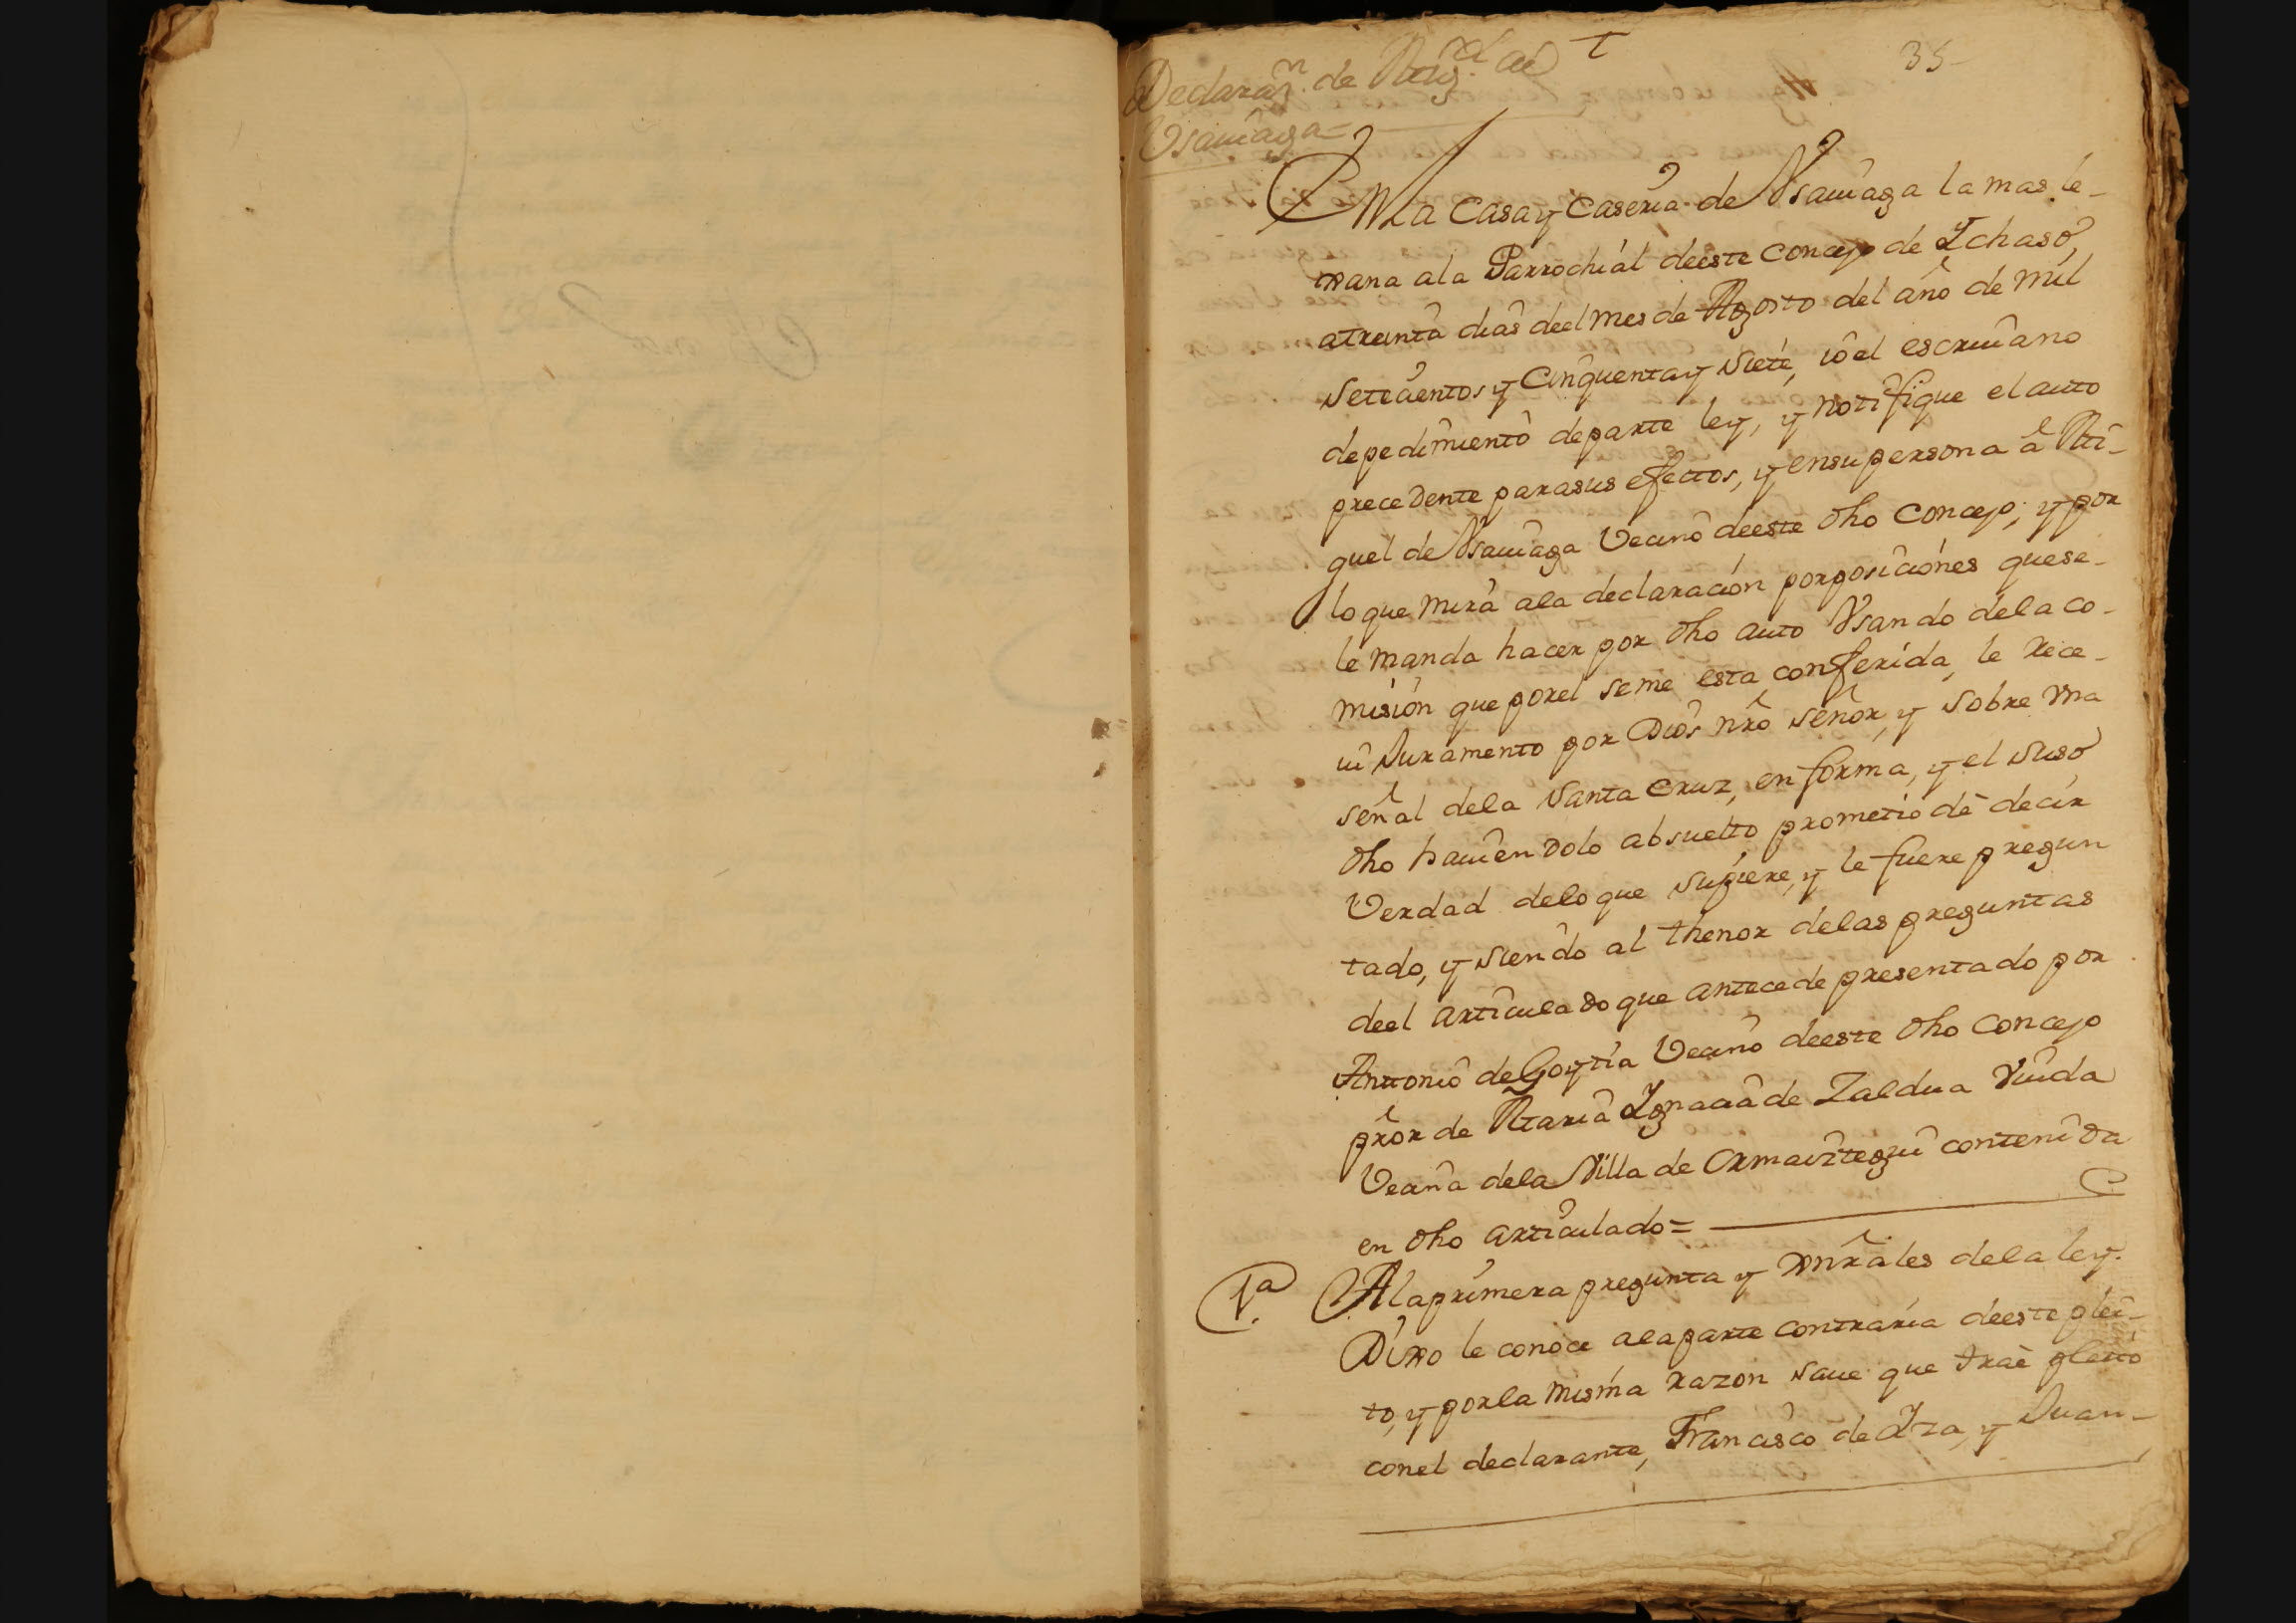 35
Declaraz.n de Mig.l de
Vsauiaga=
En la Casa y Caseria de Vsauiaga la mas le-
xana a la Parrochial de este Concejo de Ychaso,
a treinta dias de el mes de Agosto del año de mil
setecientos y Cinquenta y siete, io el escriuano
de pedimiento de parte ley, y notifique el auto
precedente para sus efectos, y en su persona â Mi-
guel de Vsauiaga Vecino de este dho Concejo, y por
lo que mira a la declaración por posiciónes que se
le manda hacer por dho auto Vsando de la co-
misión que por el se me esta conferida, le rece-
ui Juramento por Dios nrô señor, y sobre vna
señal de la Santa Cruz, en forma, y el suso
dho hauiendolo absuelto prometió de decir
Verdad de lo que supiere, y le fuere pregun
tado, y siendo al thenor de las preguntas
de el articulado que antecede presentado por
Antonio de Goytia Vecino de este dho Concejo
prôr de Maria Ygnacia de Zaldua Viuda
Vecina de la Villa de Ormaiztegui contenida
en dho articulado=
1.a A la primera pregunta y xnrâles de la ley.
Dixo le conoce a la parte contraria de este plei-
to, y por la misma razon saue que trae pleito
con el declarante, Francisco de Yza, y Juan-